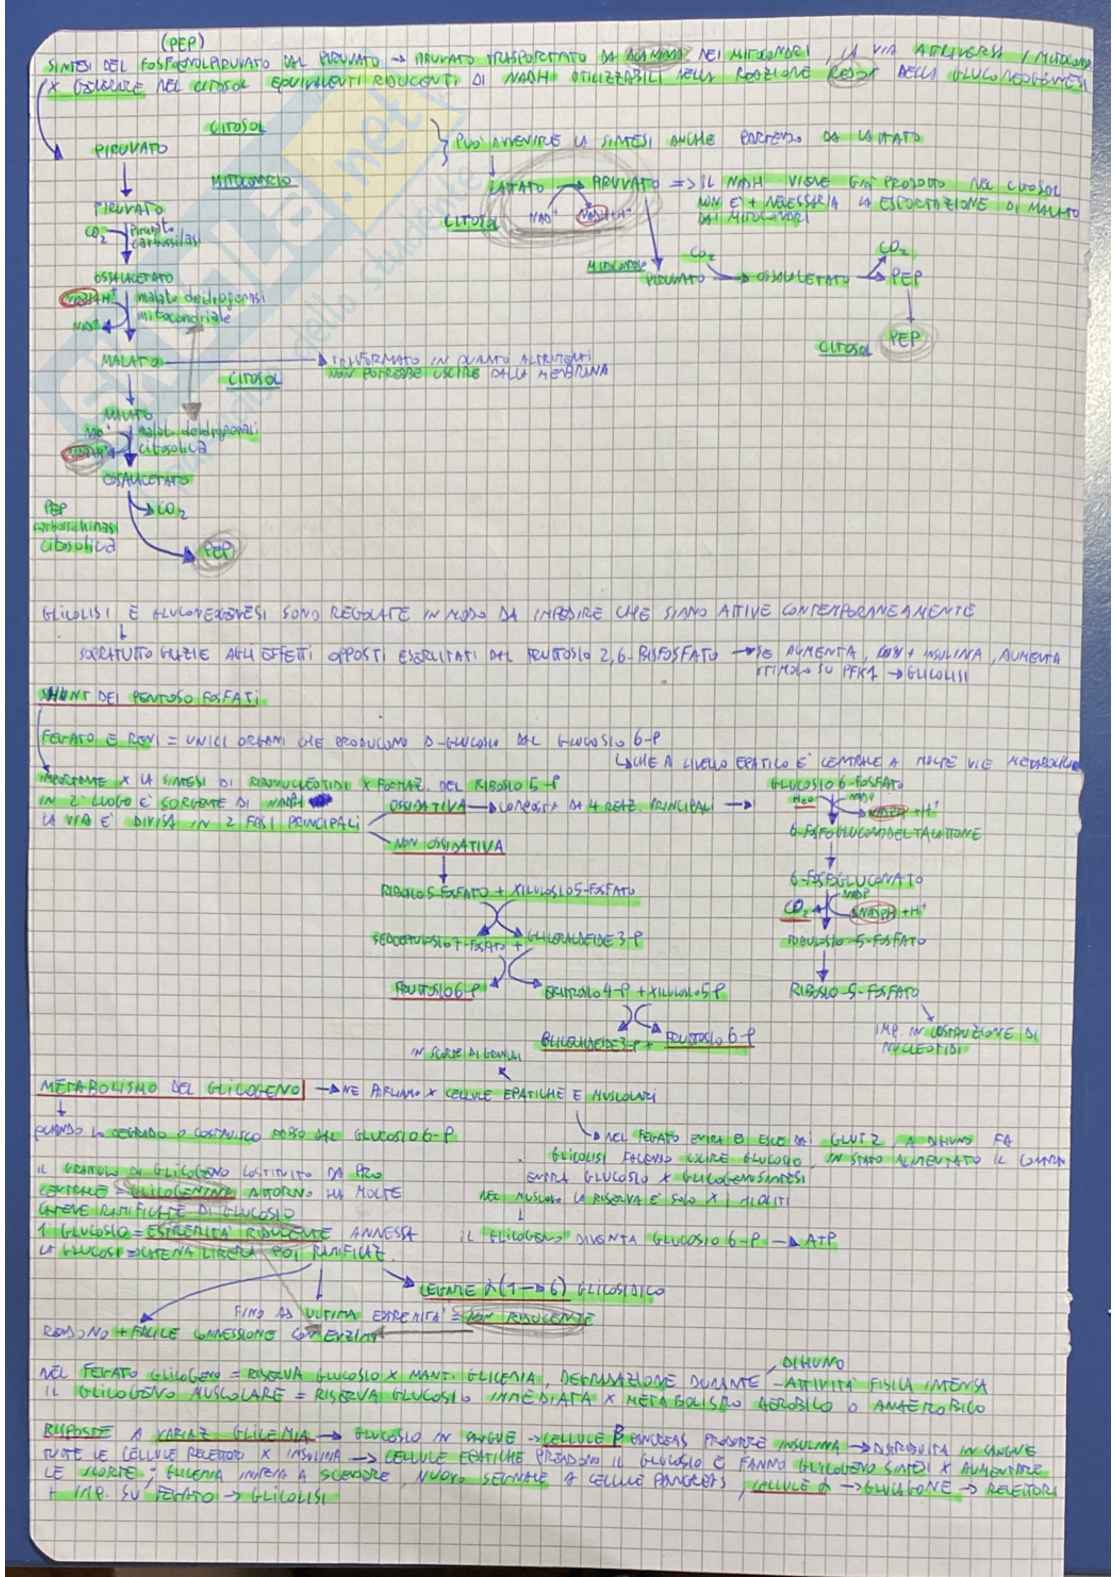 (PEP)
SINTESI DEL FOSFOENOLPIRUVATO DAL PIRUVATO → PIRUVATO TRASPORTATO DA ALANINA NEI MITOCONDRI, LA VIA ATTRAVERSA I MITOCOND
X GENERARE NEL CITOSOL EQUIVALENTI RIDUCENTI DI NADH UTILIZZABILI NELLA REAZIONE REDOX DELLA GLUCONEOGENESI
CITOSOL
PIRUVATO
PUÒ AVVENIRE LA SINTESI ANCHE PARTENDO DA LATTATO
MITOCONDRIO
LATTATO → PIRUVATO => IL NADH VIENE GIÀ PRODOTTO NEL CITOSOL
NON È + NECESSARIA LA ESPORTAZIONE DI MALATO
DAI MITOCONDRI
CITOSOL
NAD+ NADH+H+
PIRUVATO
CO2 piruvato
carbossilasi
OSSALACETATO
NADH+H+ malato deidrogenasi
NAD+ mitocondriale
MITOCONDRIO
CO2 CO2
PIRUVATO → OSSALACETATO → PEP
CITOSOL PEP
MALATO → TRASFORMATO IN QUANTO ALTRIMENTI
NON POTREBBE USCIRE DALLA MEMBRANA
CITOSOL
MALATO
NAD+ malato deidrogenasi
NADH+H+ citosolica
OSSALACETATO
CO2
PEP
carbossichinasi
citosolica
PEP
GLICOLISI E GLUCONEOGENESI SONO REGOLATE IN MODO DA IMPEDIRE CHE SIANO ATTIVE CONTEMPORANEAMENTE
SOPRATUTTO GRAZIE AGLI EFFETTI OPPOSTI ESERCITATI DAL FRUTTOSIO 2,6-BISFOSFATO → SE AUMENTA, + INSULINA, AUMENTA
STIMOLO SU PFK1 → GLICOLISI
SHUNT DEI PENTOSO FOSFATI
FEGATO E RENI = UNICI ORGANI CHE PRODUCONO D-GLUCOSIO DAL GLUCOSIO 6-P
↳ CHE A LIVELLO EPATICO E' CENTRALE A MOLTE VIE METABOLICHE
IMPORTANTE X LA SINTESI DI RIBONUCLEOTIDI X FORMAZ. DEL RIBOSIO 5-P
IN 2° LUOGO E' SORGENTE DI NADPH
LA VIA E' DIVISA IN 2 FASI PRINCIPALI
OSSIDATIVA → COMPOSTA DA 4 REAZ. PRINCIPALI →
NON OSSIDATIVA
GLUCOSIO 6-FOSFATO
H2O NADP
NADPH+H+
6-FOSFOGLUCONODELTALATTONE
6-FOSFOGLUCONATO
NADP
CO2 NADPH+H+
RIBULOSIO-5-FOSFATO
RIBOSIO-5-FOSFATO
IMP. IN COSTRUZIONE DI
NUCLEOTIDI
RIBOSIO 5-FOSFATO + XILULOSIO 5-FOSFATO
SEDOEPTULOSIO 7-FOSFATO + GLICERALDEIDE 3-P
FRUTTOSIO 6-P ERITROSIO 4-P + XILULOSIO 5P
GLICERALDEIDE 3-P + FRUTTOSIO 6-P
IN SCORTE DI GRANULI
METABOLISMO DEL GLICOGENO → NE PARLIAMO X CELLULE EPATICHE E MUSCOLARI
QUANDO LO DEGRADO O COSTRUISCO PASSO DAL GLUCOSIO 6-P
NEL FEGATO ENTRA ED ESCE DAI GLUT2, A DIGIUNO FA
GLICOLISI FACENDO USCIRE GLUCOSIO, IN STATO ALIMENTATO IL CONTRA
ENTRA GLUCOSIO X GLICOGENOSINTESI
NEL MUSCOLO LA RISERVA E' SOLO X I MIOCITI
IL GLICOGENO DIVENTA GLUCOSIO 6-P → ATP
IL GRANULO DI GLICOGENO COSTITUITO DA PRO
CENTRALE = GLICOGENINA ATTORNO HA MOLTE
CATENE RAMIFICATE DI GLUCOSIO
1 GLUCOSIO = ESTREMITÀ RIDUCENTE ANNESSA
LA GLUCOSI = CATENA LIBERA POI RAMIFICAZ.
LEGAME α(1→6) GLICOSIDICO
FINO AD ULTIMA ESTREMITÀ = NON RIDUCENTE
RENDONO + FACILE CONNESSIONE CON ENZIMI
NEL FEGATO GLICOGENO = RISERVA GLUCOSIO X MANT. GLICEMIA, DEGRADAZIONE DURANTE
DIGIUNO
- ATTIVITÀ FISICA INTENSA
IL GLICOGENO MUSCOLARE = RISERVA GLUCOSIO IMMEDIATA X METABOLISMO AEROBICO O ANAEROBICO
RISPOSTE A VARIAZ GLICEMIA → GLUCOSIO IN SANGUE → CELLULE β PANCREAS PRODURRE INSULINA → DISTRIBUITA IN SANGUE
TUTTE LE CELLULE RECETTORI X INSULINA → CELLULE EPATICHE PRENDONO IL GLUCOSIO E FANNO GLICOGENO SINTESI X AUMENTARE
LE SCORTE; GLICEMIA INIZIA A SCENDERE, NUOVO SEGNALE A CELLULE PANCREAS, CELLULE α → GLUCAGONE → RECETTORI
+ IMP. SU FEGATO → GLICOLISI